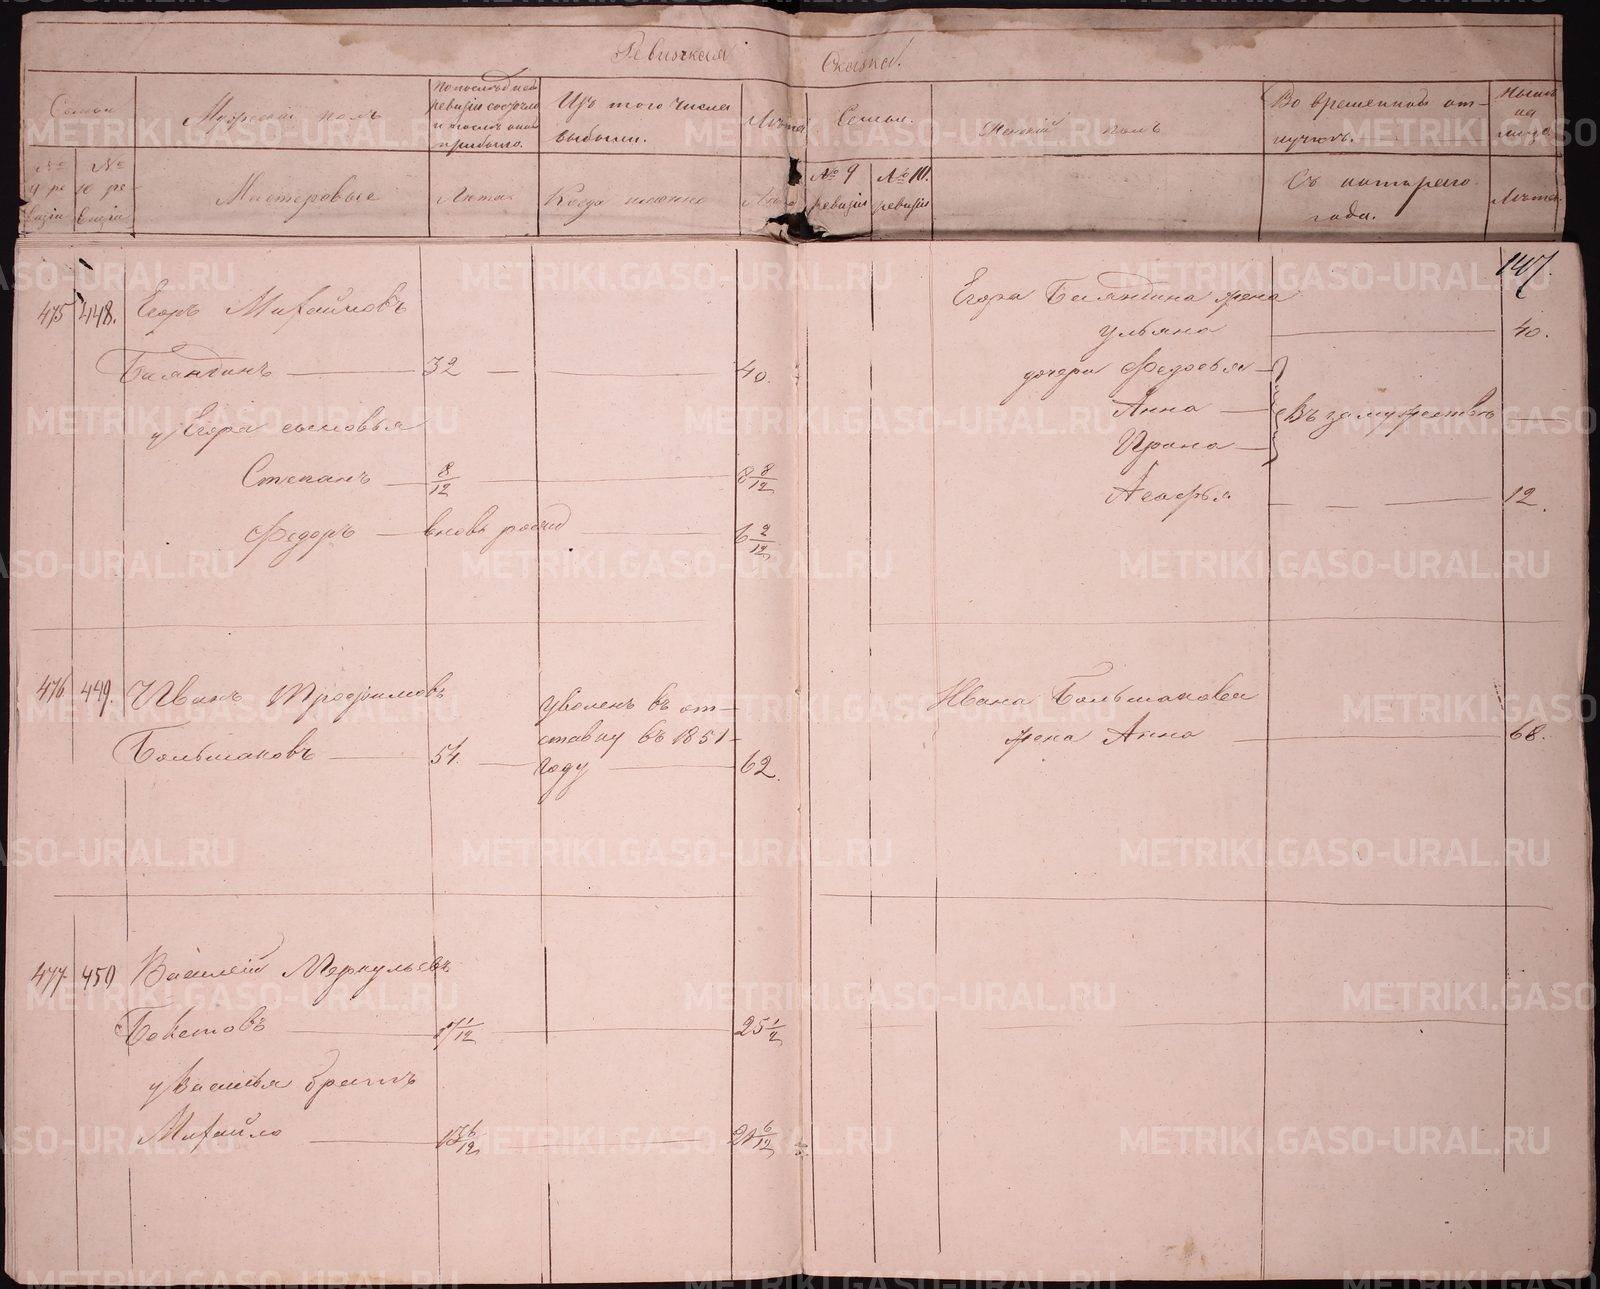 Ревизская Сказка.
Семьи
Мужескій полъ
По последней
ревизіи состояло
и после оной
прибыло.
Изъ того числа
выбыли.
Лета
Семьи.
Женскій полъ
Во временной от-
лучке.
Ныне
на
лицо
№ 9 ре-
визіи
№ 10 ре-
визіи
Мастеровые
Лета
Когда именно
Лета
№ 9
ревизіи
№ 10.
ревизіи
Съ котораго
года.
Лета.
147.
475 448. Егоръ Михайловъ
32 40.
у Егора сыновья
Степанъ 8/12 8 8/12
Федоръ вновь рожд 6 2/12
жена
Ульяна 40.
дочери Федосья
Анна Въ замужестве
Ирина
Агафья 12.
476 449. Иванъ Трофимовъ
Большаковъ 54. 62.
уволенъ въ от-
ставку въ 1851
году
Ивана Большакова
жена Анна 68.
477 450 Василій Меркульевъ
Бекетовъ 17 1/12 25 1/2
у Василья братъ
Михайло 13 6/12 21 6/12
METRIKI.GASO-URAL.RU